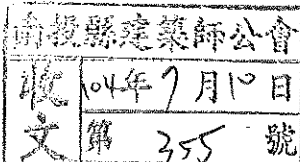 南投縣建築師公會
收文
104年7月10日
第355號